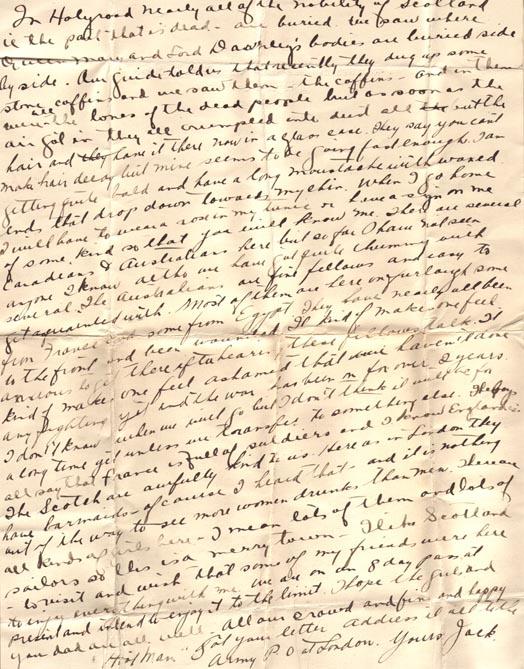 In Holyrood nearly all of the nobility of Scotland
in the past - that is dead - are buried. We saw where
Queen Mary and Lord Darnley's bodies are buried side
by side. Our guide told us that recently they dug up some
stone coffins and we saw them - the coffins - and in them
were the bones of the dead people but as soon as the
air got in they all crumpled into dust all but the
hair and they have it there now in a glass case. They say you can't
make hair decay but mine seems to be going fast enough. I am
getting quite bald and have a long moustache with waxed
ends that drop down towards my chin. When I go home
I will have to wear a rose in my tunic or have a sign on me
of some kind so that you will know me. There are several
Canadians & Australians here but so far I have not seen
anyone I know altho we have got quite chummy with
several. The Australians are fine fellows and easy to
get acquainted with. Most of them are here on furlough some
from France and some from Egypt. They have nearly all been
to the front and been wounded. It kind of makes one feel
anxious to get there after hearing these fellows talk. It
kind of makes one feel ashamed that we haven't done
any fighting yet and the war has been on for over 2 years.
I don't know when we will go but I don't think it will be for
a long time yet unless we transfer to something else. They
all say that France is full of soldiers and I know England is.
The Scotch are awfully kind to us. Here as in London they
have barmaids - of course I heard that - and it is nothing
out of the way to see more women drunks than men. There are
all kinds of girls here - I mean lots of them and lots of
sailors so this is a merry town - I like Scotland
- to visit and wish that some of my friends were here
to enjoy everything with me. We are on an 8 day pass at
present and intend to enjoy it to the limit. I hope the girls and
you dad are all well. All our crowd and fine and happy
Got your letter address it all to the
Army P O at London. Yours, Jack.